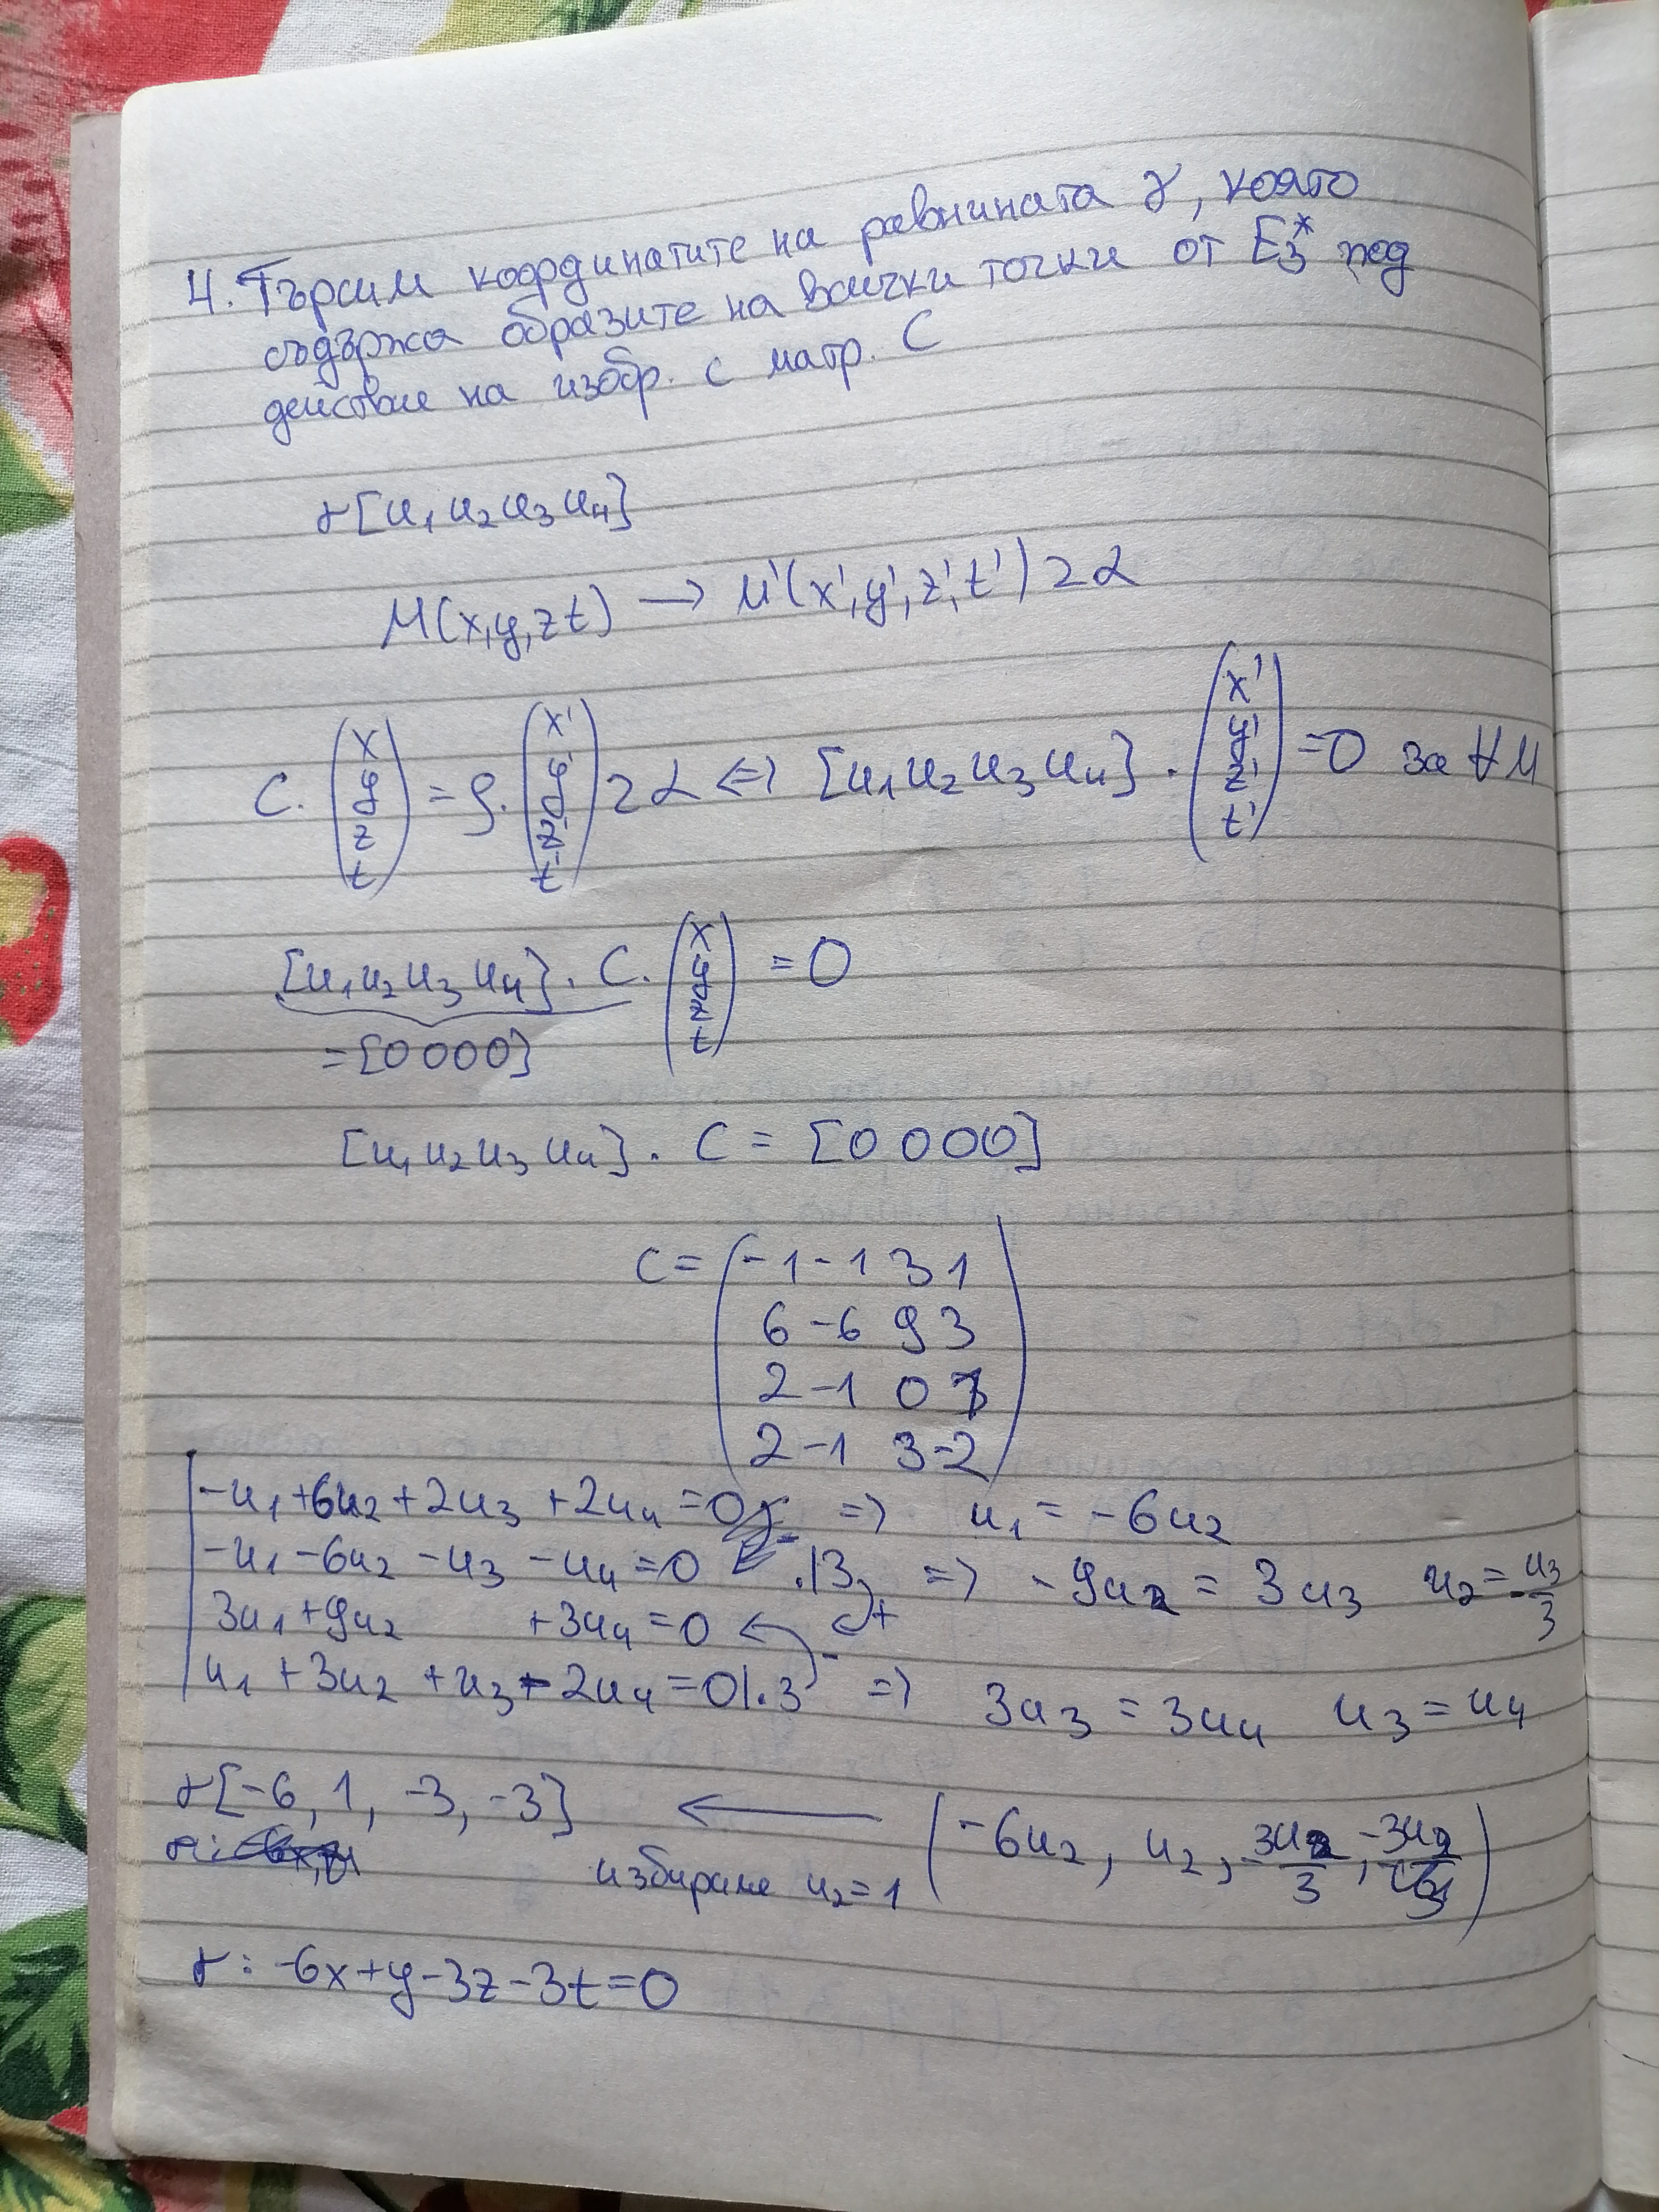 4. Търсим координатите на равнината γ, която
съдържа образите на всички точки от E₃* под
действие на изобр. с матр. C
γ[u₁ u₂ u₃ u₄]
M(x,y,z t) → M'(x',y',z',t') z α
C. (x y z t) = ρ. (x' y' z' t') z α ⇔ [u₁ u₂ u₃ u₄] . (x' y' z' t') = 0 за ∀ M
[u₁ u₂ u₃ u₄] . C. (x y z t) = 0
= [0 0 0 0]
[u₁ u₂ u₃ u₄] . C = [0 0 0 0]
C = (-1 -1 3 1
6 -6 9 3
2 -1 0 1
2 -1 3 -2)
-u₁ + 6u₂ + 2u₃ + 2u₄ = 0 ⇒ u₁ = -6u₂
-u₁ - 6u₂ - u₃ - u₄ = 0 .|3 ⇒ -9u₂ = 3u₃ u₂ = -u₃/3
3u₁ + 9u₂ + 3u₄ = 0 +
u₁ + 3u₂ + u₃ - 2u₄ = 0 |.3 - ⇒ 3u₃ = 3u₄ u₃ = u₄
γ[-6, 1, -3, -3] ← (-6u₂, u₂, -3u₂/3, -3u₂/3)
избираме u₂ = 1
γ: -6x+y-3z-3t=0